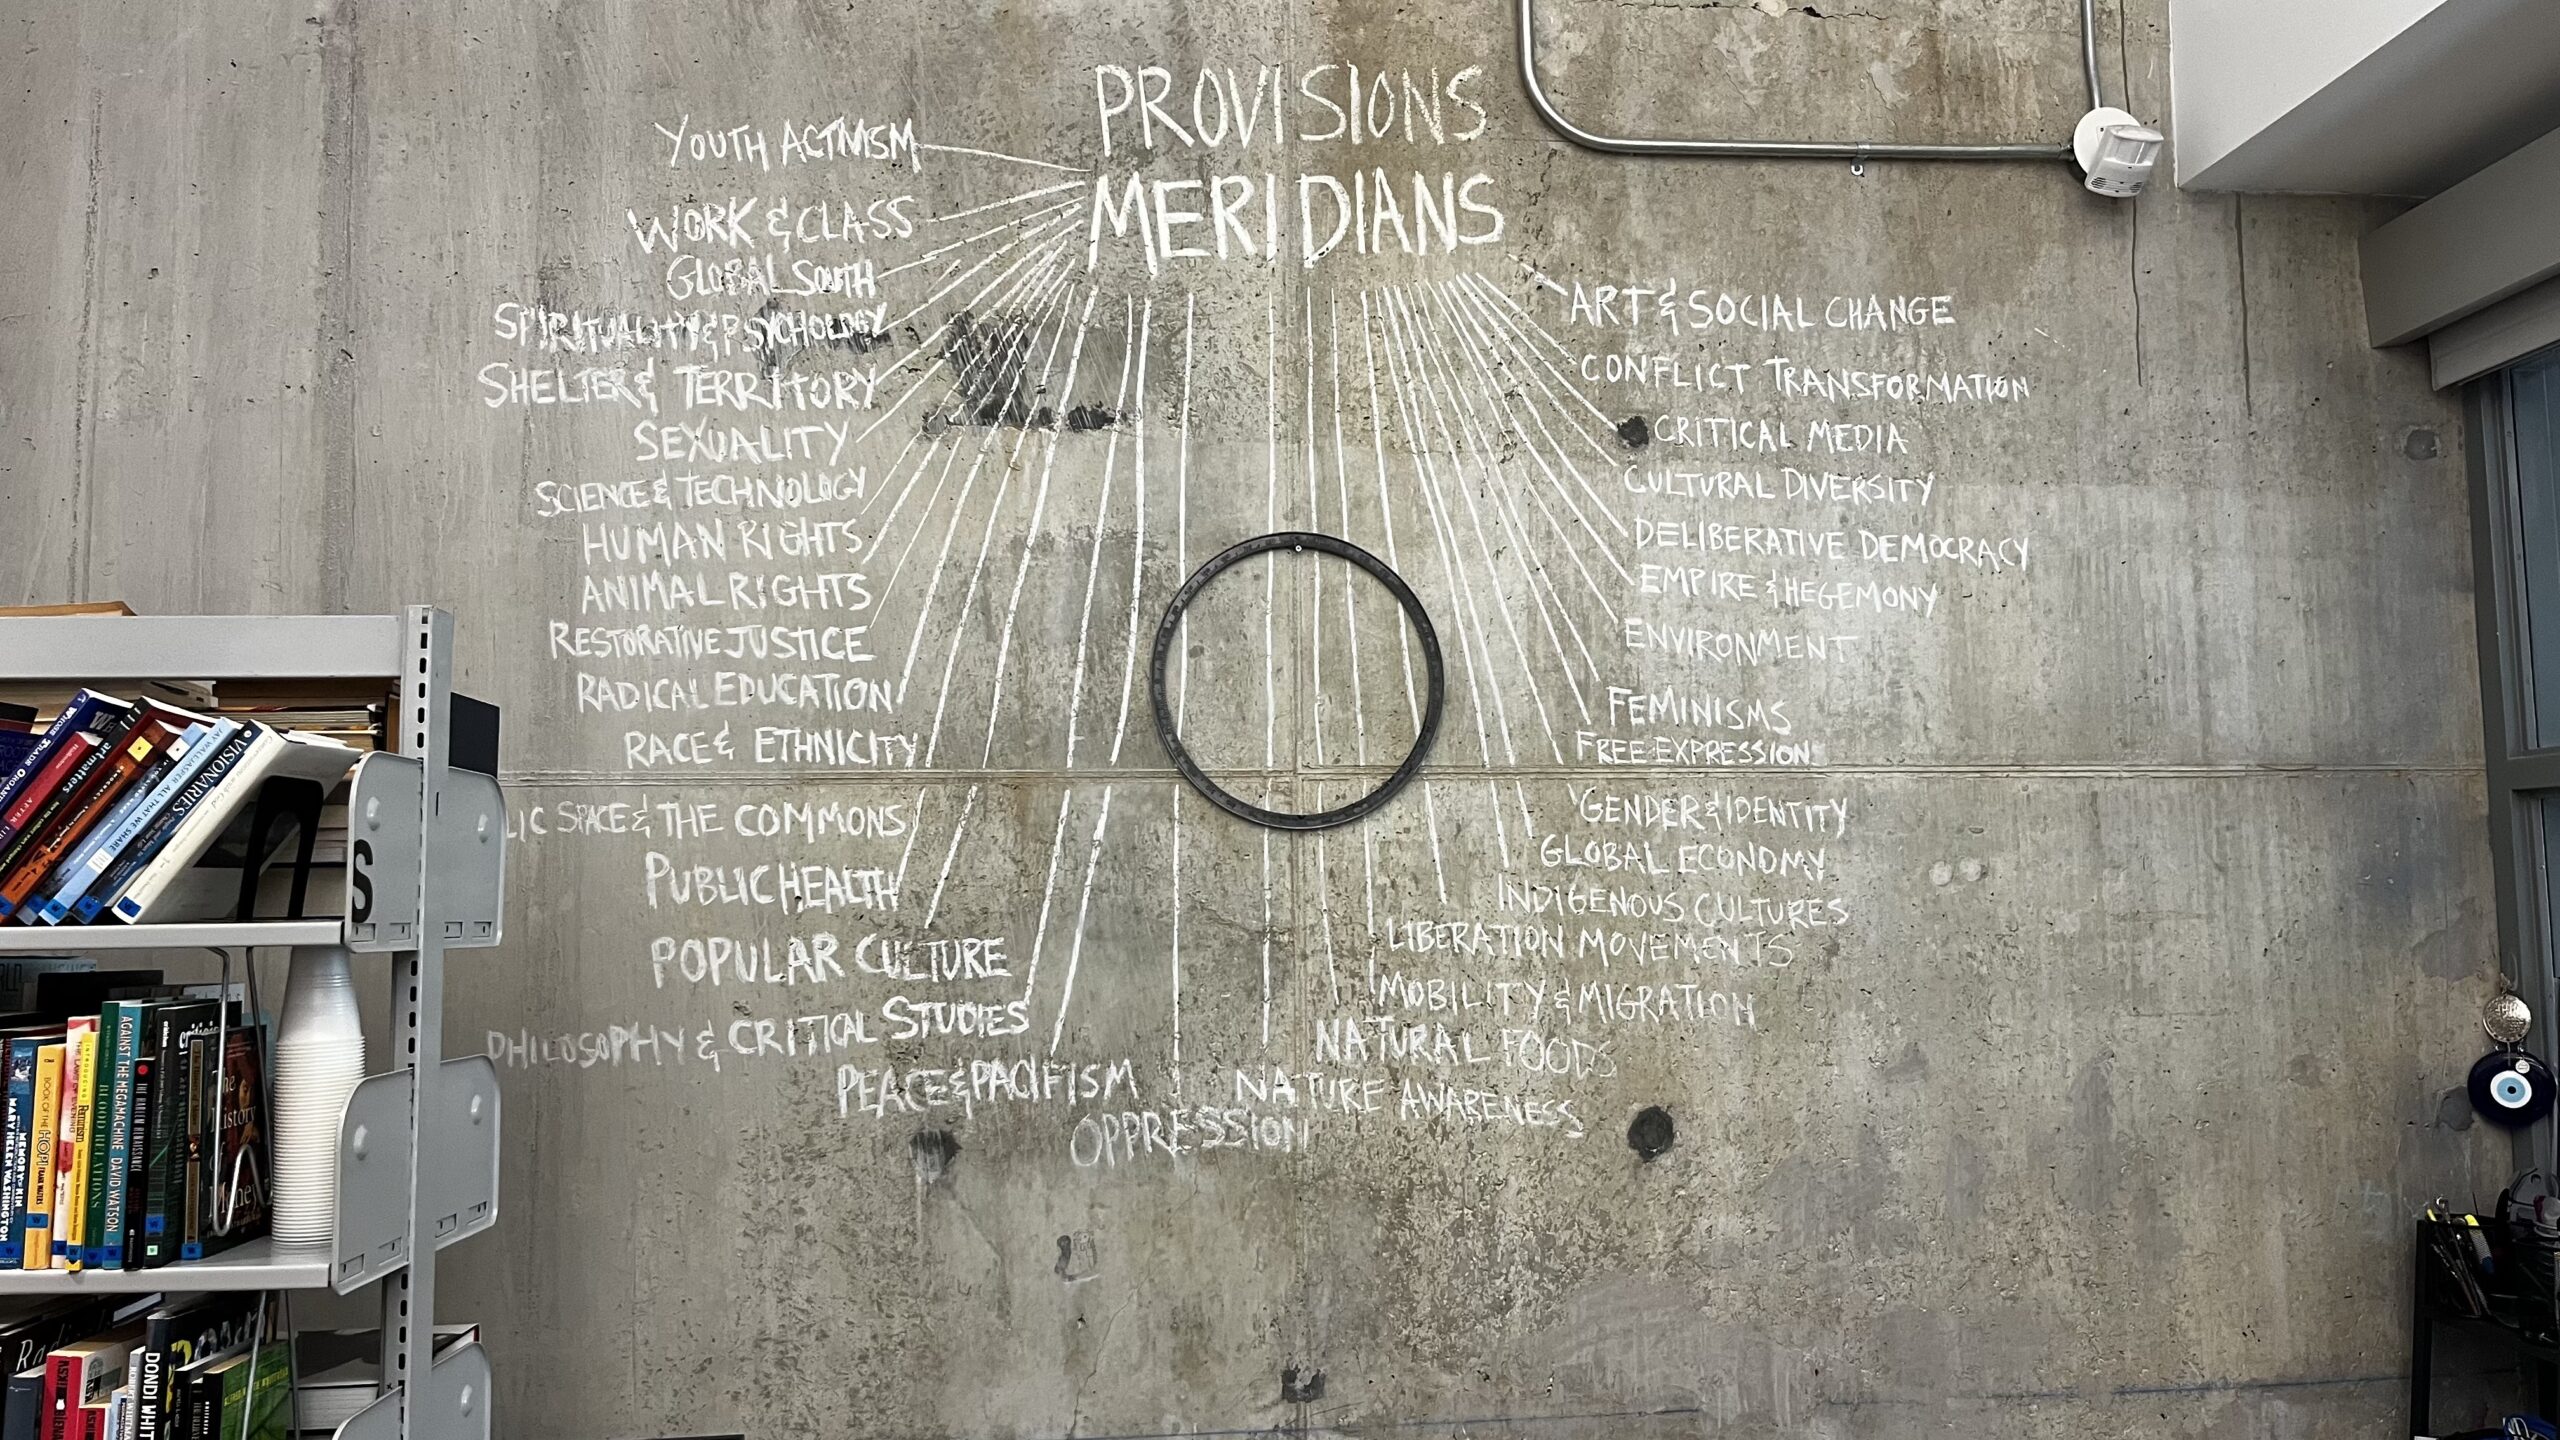 PROVISIONS
MERIDIANS
YOUTH ACTIVISM
WORK & CLASS
GLOBAL SOUTH
SPIRITUALITY & PSYCHOLOGY
SHELTER & TERRITORY
SEXUALITY
SCIENCE & TECHNOLOGY
HUMAN RIGHTS
ANIMAL RIGHTS
RESTORATIVE JUSTICE
RADICAL EDUCATION
RACE & ETHNICITY
LIC SPACE & THE COMMONS
PUBLIC HEALTH
POPULAR CULTURE
PHILOSOPHY & CRITICAL STUDIES
PEACE & PACIFISM
OPPRESSION
ART & SOCIAL CHANGE
CONFLICT TRANSFORMATION
CRITICAL MEDIA
CULTURAL DIVERSITY
DELIBERATIVE DEMOCRACY
EMPIRE & HEGEMONY
ENVIRONMENT
FEMINISMS
FREE EXPRESSION
GENDER & IDENTITY
GLOBAL ECONOMY
INDIGENOUS CULTURES
LIBERATION MOVEMENTS
MOBILITY & MIGRATION
NATURAL FOODS
NATURE AWARENESS
WHOSE TRADE ORGAN
artmatters
JAY WALLJASPER ALL THAT WE SHARE
VISIONARIES
S
MEMORY OF KIN MARY HELEN WASHINGTON
BOOK OF THE HOPI FRANK WATERS
Feminism
BLOOD RELATIONS
AGAINST THE MEGAMACHINE DAVID WATSON
THE HARLEM RENAISSANCE
The History of Money
DONDI WHIT